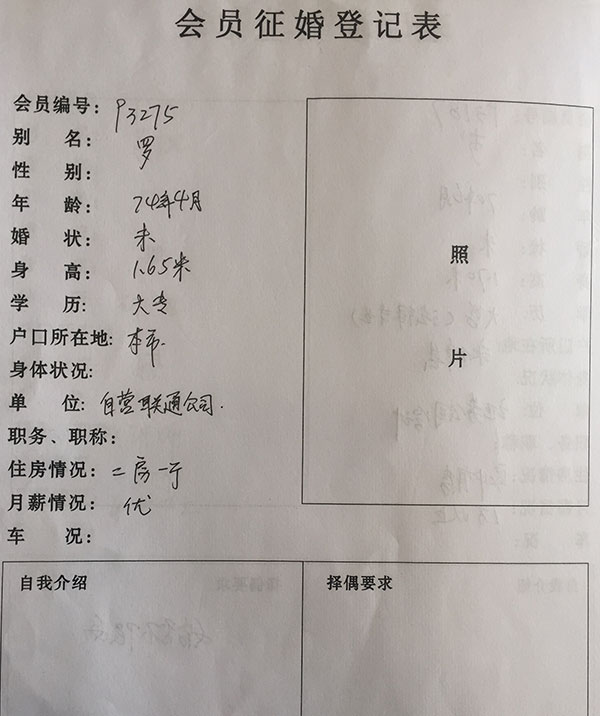 会员征婚登记表
会员编号：P3275
别　名：罗
性　别：
年　龄：74年4月
婚　状：未
身　高：1.65米
学　历：大专
户口所在地：本市.
身体状况：
单　位：自营联通公司.
职务、职称：
住房情况：二房一厅
月薪情况：优
车　况：
照
片
自我介绍
择偶要求